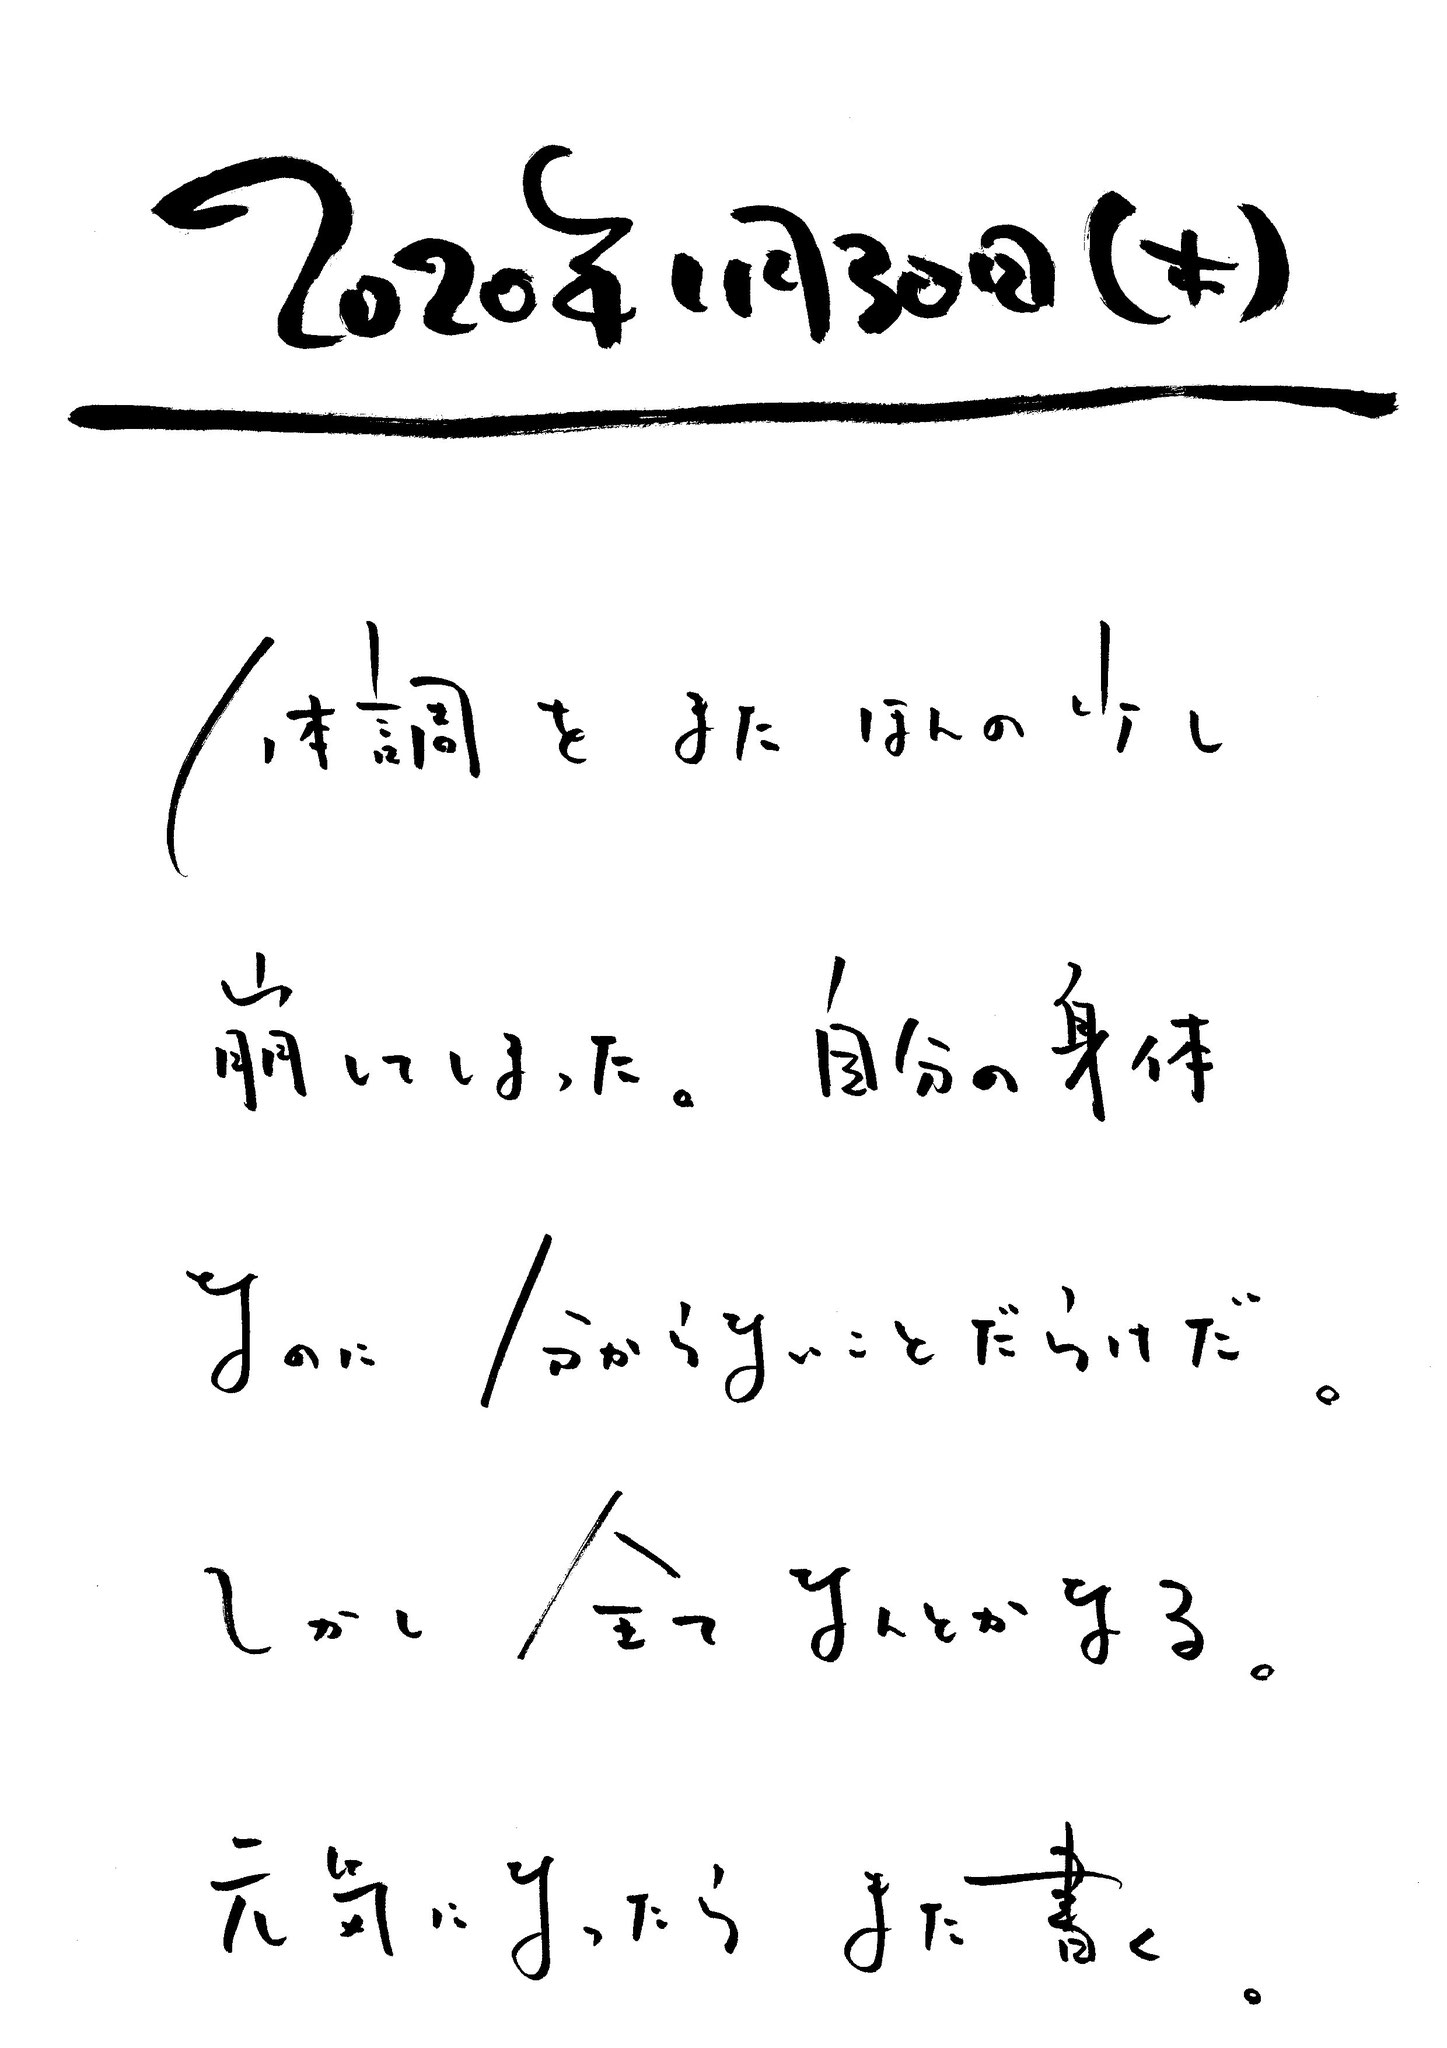 2020年11月30日(木)
体調をまたほんの少し
崩してしまった。自分の身体
なのに分からないことだらけだ。
しかし全てなんとかなる。
元気になったらまた書く。